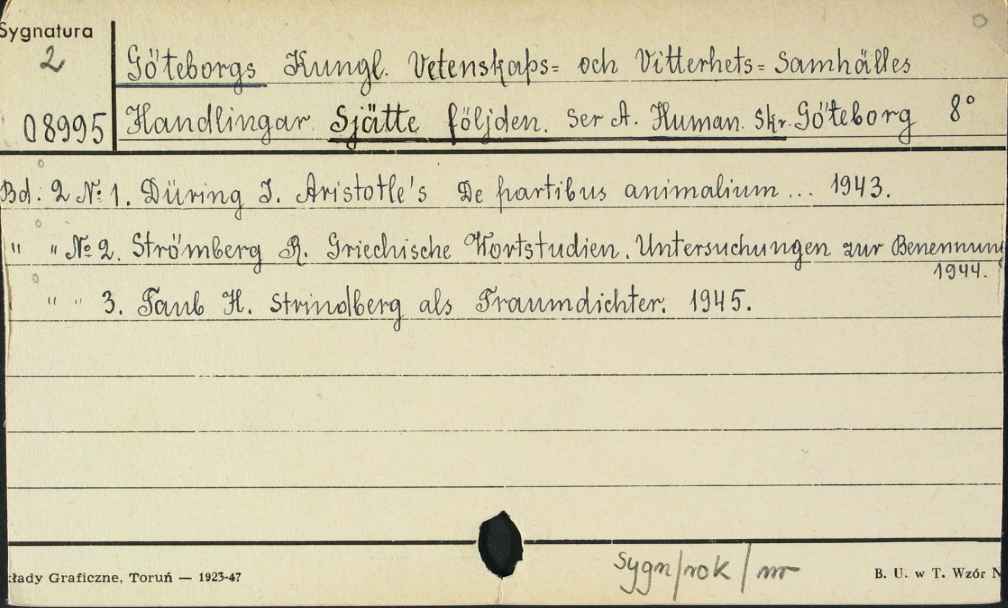 Sygnatura
2
08995
Göteborgs Kungl. Vetenskaps= och Vitterhets= Samhälles
Handlingar. Sjätte följden. Ser A. Human. Skr. Göteborg 8°
Bd. 2 No 1. Düring I. Aristotle's De partibus animalium ... 1943.
" " No 2. Strömberg R. Griechische Wortstudien. Untersuchungen zur Benennung
1944.
" " 3. Taub H. Strindberg als Traumdichter. 1945.
Sygn/rok/nr
łady Graficzne, Toruń — 1923-47
B. U. w T. Wzór N